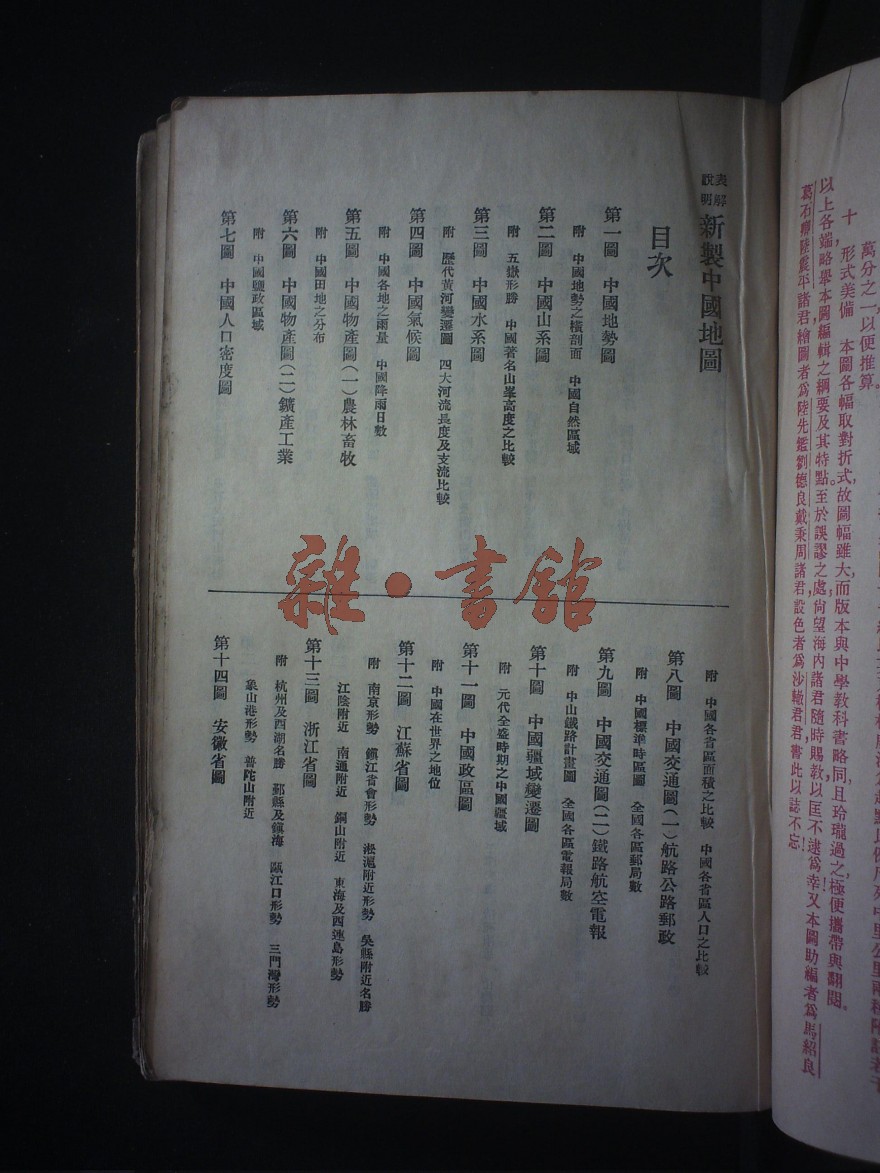 萬分之一以便推算。
十　形式美備　本圖各幅取對折式，故圖幅雖大而版本與中學教科書略同，且玲瓏過之，極便攜帶與翻閱。
以上各端，略舉本圖編輯之綱要及其特點。至於誤謬之處，尚望海內諸君隨時賜教，以匡不逮為幸！又本圖助編者為馬紹良
葛石卿陸震平諸君，繪圖者為陸先鑑劉德良戴秉周諸君，設色者為沙轍君，書此以誌不忘！
表解
說明
新製中國地圖
目次
第一圖　中國地勢圖
附　中國地勢之橫剖面　中國自然區域
第二圖　中國山系圖
附　五嶽形勝　中國著名山峯高度之比較
第三圖　中國水系圖
附　歷代黃河變遷圖　四大河流長度及支流比較
第四圖　中國氣候圖
附　中國各地之雨量　中國降雨日數
第五圖　中國物產圖(一)農林畜牧
附　中國田地之分布
第六圖　中國物產圖(二)鑛產工業
附　中國鹽政區域
第七圖　中國人口密度圖
附　中國各省區面積之比較　中國各省區人口之比較
第八圖　中國交通圖(一)航路公路郵政
附　中國標準時區圖　全國各區郵局數
第九圖　中國交通圖(二)鐵路航空電報
附　中山鐵路計畫圖　全國各區電報局數
第十圖　中國疆域變遷圖
附　元代全盛時期之中國疆域
第十一圖　中國政區圖
附　中國在世界之地位
第十二圖　江蘇省圖
附　南京形勢　鎮江省會形勢　淞滬附近形勢　吳縣附近名勝
江陰附近　南通附近　銅山附近　東海及西連島形勢
第十三圖　浙江省圖
附　杭州及西湖名勝　鄞縣及鎮海　甌江口形勢　三門灣形勢
象山港形勢　普陀山附近
第十四圖　安徽省圖
雜·書館